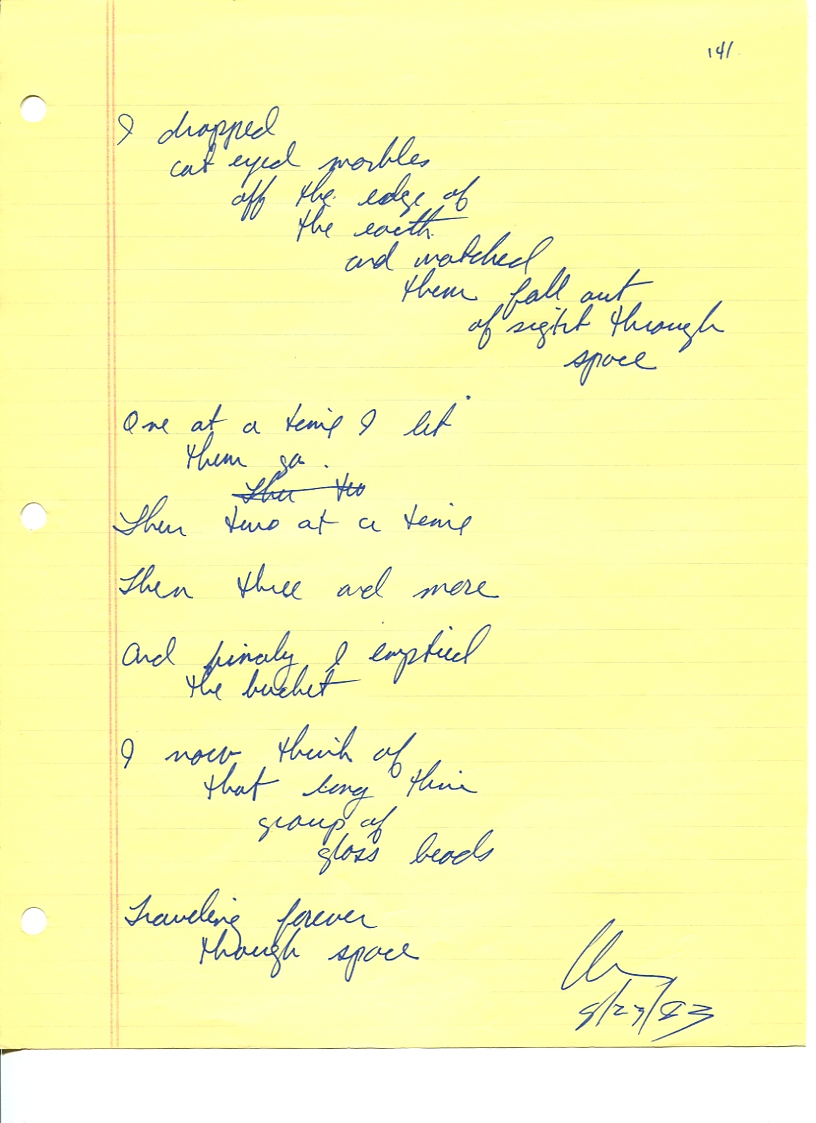 141
I dropped
cat eyed marbles
off the edge of
the earth
and watched
them fall out
of sight through
space
One at a time I let
them go.
Then two
Then two at a time
Then three and more
And finaly I emptied
the bucket
I now think of
that long thin
group of
glass beads
Traveling forever
though space
8/23/83